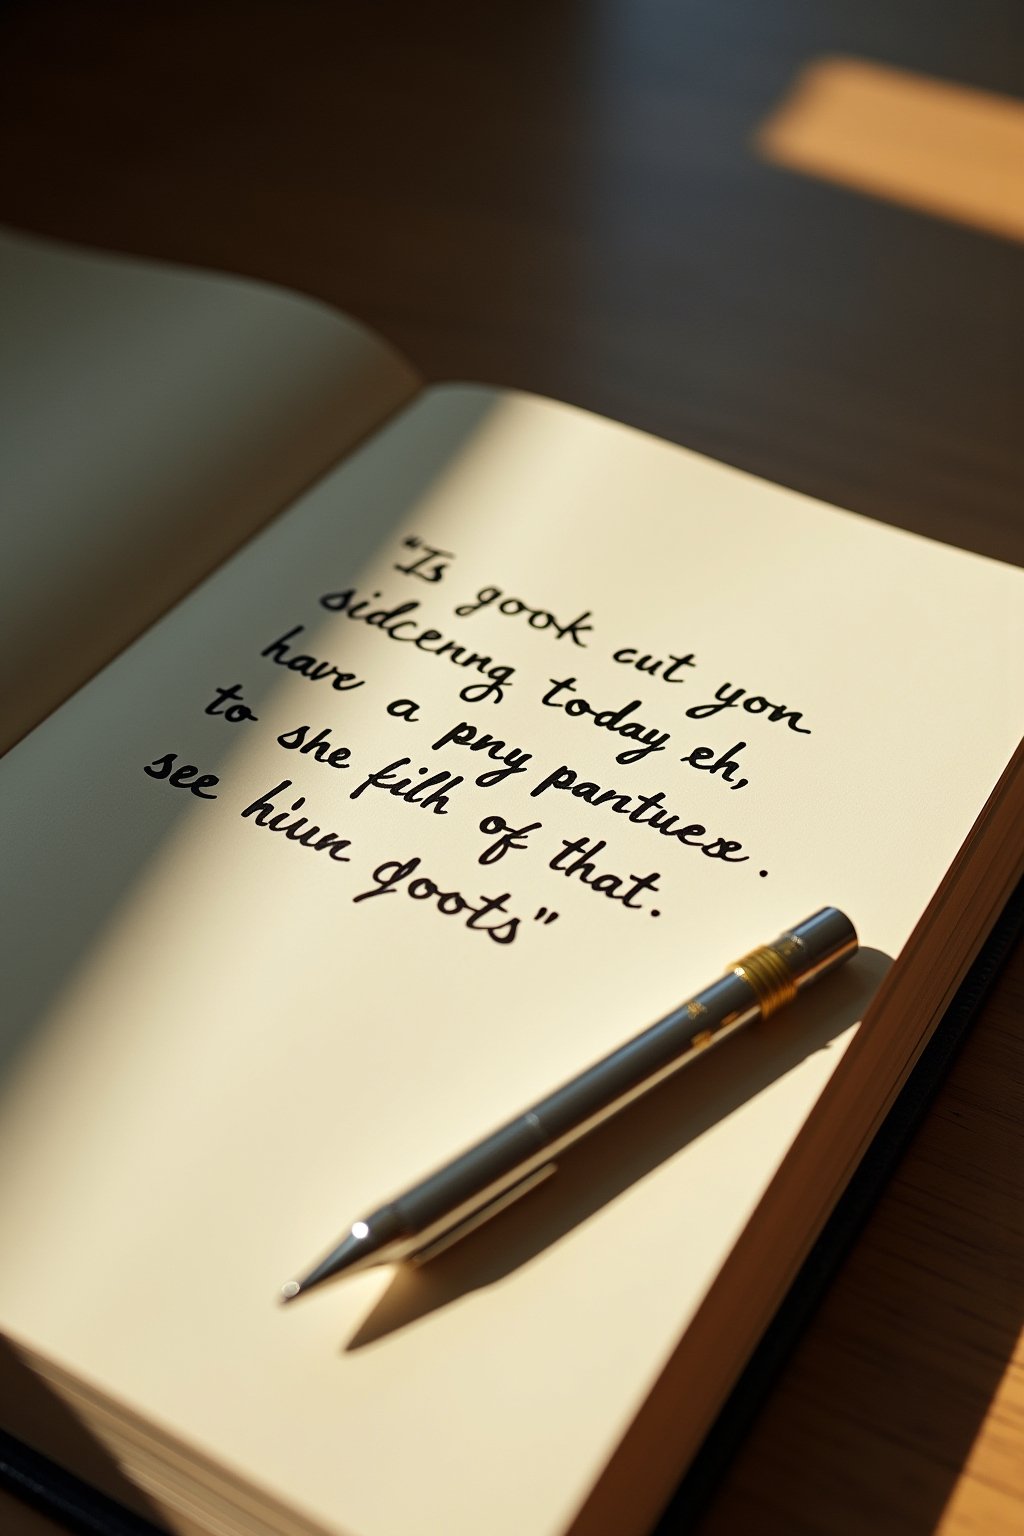 "Is gook cut yon
sidcenng today eh,
have a pny pantuese.
to she filh of that.
see hiun qoots"